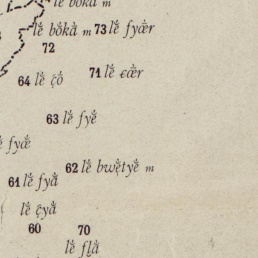 lẽ bòkȧ̀ m
lẽ́ bṍkȧ̀ m 73 lẽ́ fyœ̀r
72
64 lẽ́ ç̣ṍ 71 lẽ́ ɛœ̀r
63 lẽ́ fyẽ̀
ẽ́ fyœ̀
62 lẽ́ bwẹ̃tyẽ̀ m
61 lẽ́ fyȧ̀
lẽ́ ç̣yȧ̀
60 70
lẽ́ flȧ̀